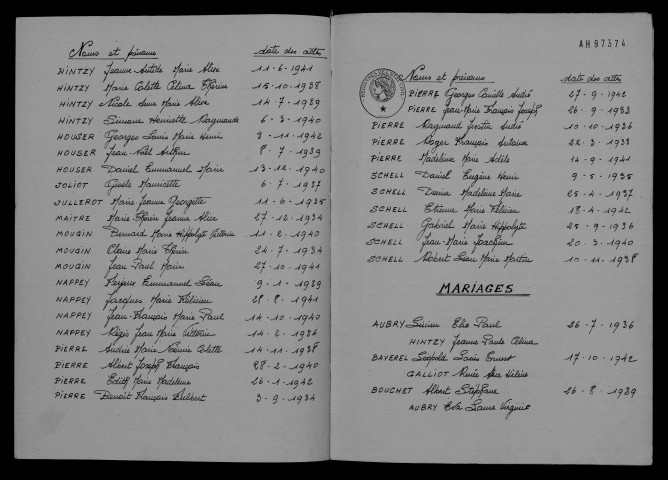 Noms et prénoms date des actes
HINTZY Jeanne Marie Alice 11-6-1941
HINTZY Marie Colette Célina Thérèse 15-10-1938
HINTZY Nicole Anne Marie Alice 14-7-1939
HINTZY Simone Henriette Raymonde 6-3-1940
HOUSER Georges Louis Marie Henri 3-11-1942
HOUSER Jean-Noël Arthur 8-7-1939
HOUSER Daniel Emmanuel Marie 13-12-1940
JOLIOT Gisèle Mauricette 6-7-1937
JULLEROT Marie-Jeanne Georgette 11-6-1935
MAITRE Marie-Thérèse Jeanne Alice 27-12-1934
MOUGIN Bernard Marie Hippolyte Victorin 11-2-1940
MOUGIN Claire Marie Thérèse 24-7-1934
MOUGIN Jean Paul Marie 27-10-1941
NAPPEY Emmanuel Léon 9-1-1939
NAPPEY Jacques Marie Félicien 28-8-1941
NAPPEY Jean-François Marie Paul 14-10-1940
NAPPEY Régis Jean Marie Victorin 14-2-1936
PIERRE Andrée Marie Noémie Colette 14-11-1938
PIERRE Albert Joseph François 28-2-1940
PIERRE Edith Marie Madeleine 26-1-1942
PIERRE Benoit François Philibert 3-9-1934
AH97374
Noms et prénoms date des actes
PIERRE Georges Camille André 27-9-1942
PIERRE Jean-Marie François Joseph 26-9-1933
PIERRE Raymond Justin André 10-10-1936
PIERRE Roger François Antoine 22-3-1938
PIERRE Madeleine Marie Adèle 14-9-1941
SCHELL Daniel Eugène Henri 9-5-1935
SCHELL Denise Madeleine Marie 25-4-1937
SCHELL Etienne Marie Félicien 18-4-1942
SCHELL Gabriel Marie Hippolyte 25-9-1936
SCHELL Jean-Marie Joachim 20-3-1940
SCHELL Robert Léon Marie 10-11-1938
MARIAGES
AUBRY Elie Paul 26-7-1936
HINTZY Jeanne Paule Célina
BAVEREL Léopold Louis Ernest 17-10-1942
GALLIOT Renée Hélène
BOUCHET Albert Stéphane 26-8-1939
AUBRY Eva Laure Virginie